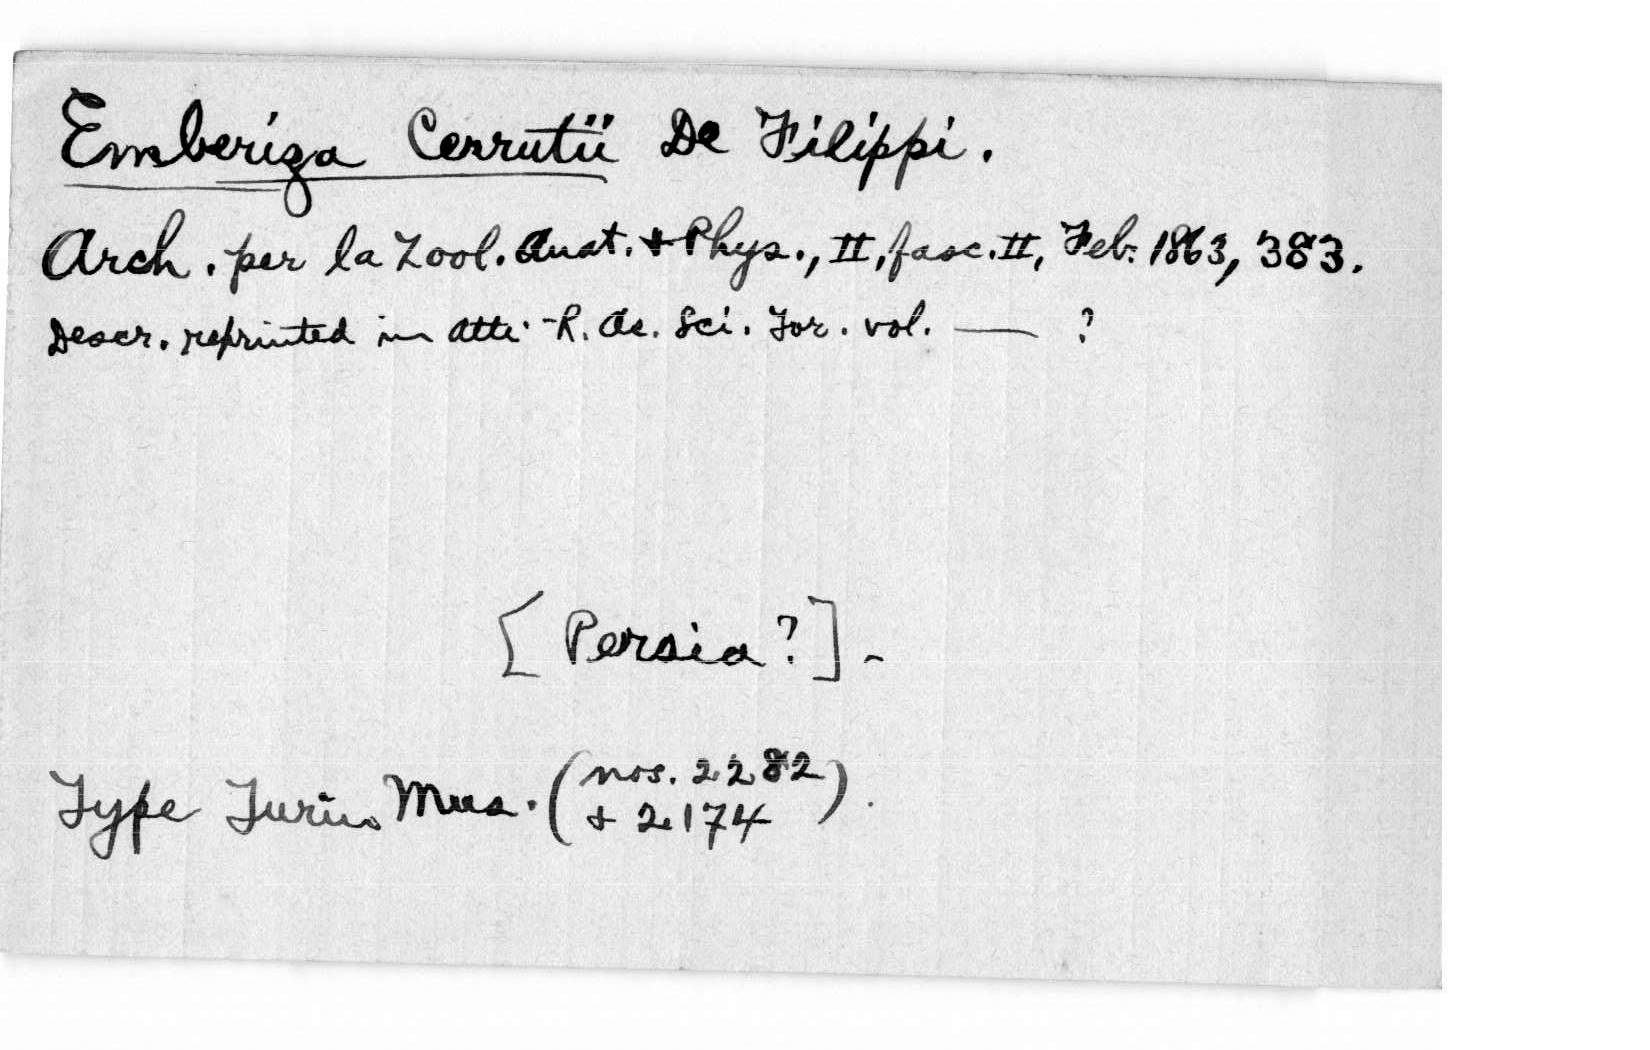 Emberiza Cerrutii De Filippi.
Arch. per la Zool. Anat. + Phys., II, fasc. II, Feb. 1863, 383.
Descr. reprinted in Atti R. Ac. Sci. Tor. vol. — ?
[Persia?].
Type Turin Mus. (nos. 2282
+ 2174).